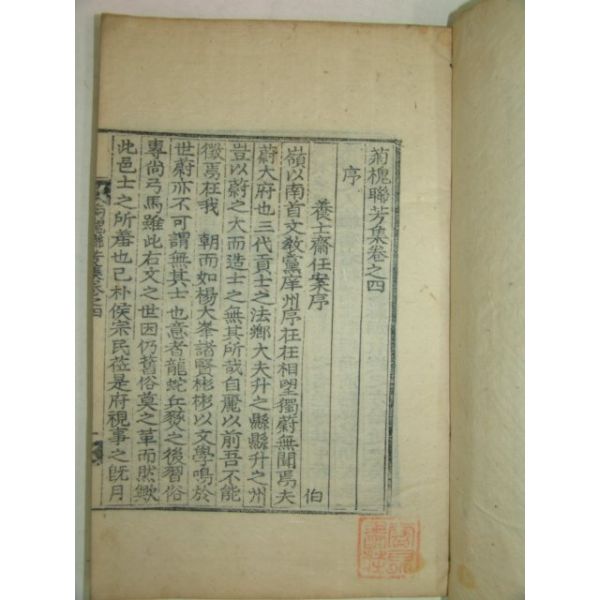 菊槐聯芳集卷之四
序
養士齋任案序 伯
嶺以南首文敎黨庠州序在在相望獨蔚無聞焉夫
蔚大府也三代貢士之法鄕大夫升之縣縣升之州
豈以蔚之大而造士之無其所哉自麗以前吾不能
徵焉在我 朝而如楊大峯諸賢彬彬以文學鳴於
世蔚亦不可謂無其士也意者龍蛇兵燹之後習俗
專尙弓馬雖此右文之世因仍舊俗莫之革而然歟
此邑士之所羞也已朴侯宗民莅是府視事之旣月